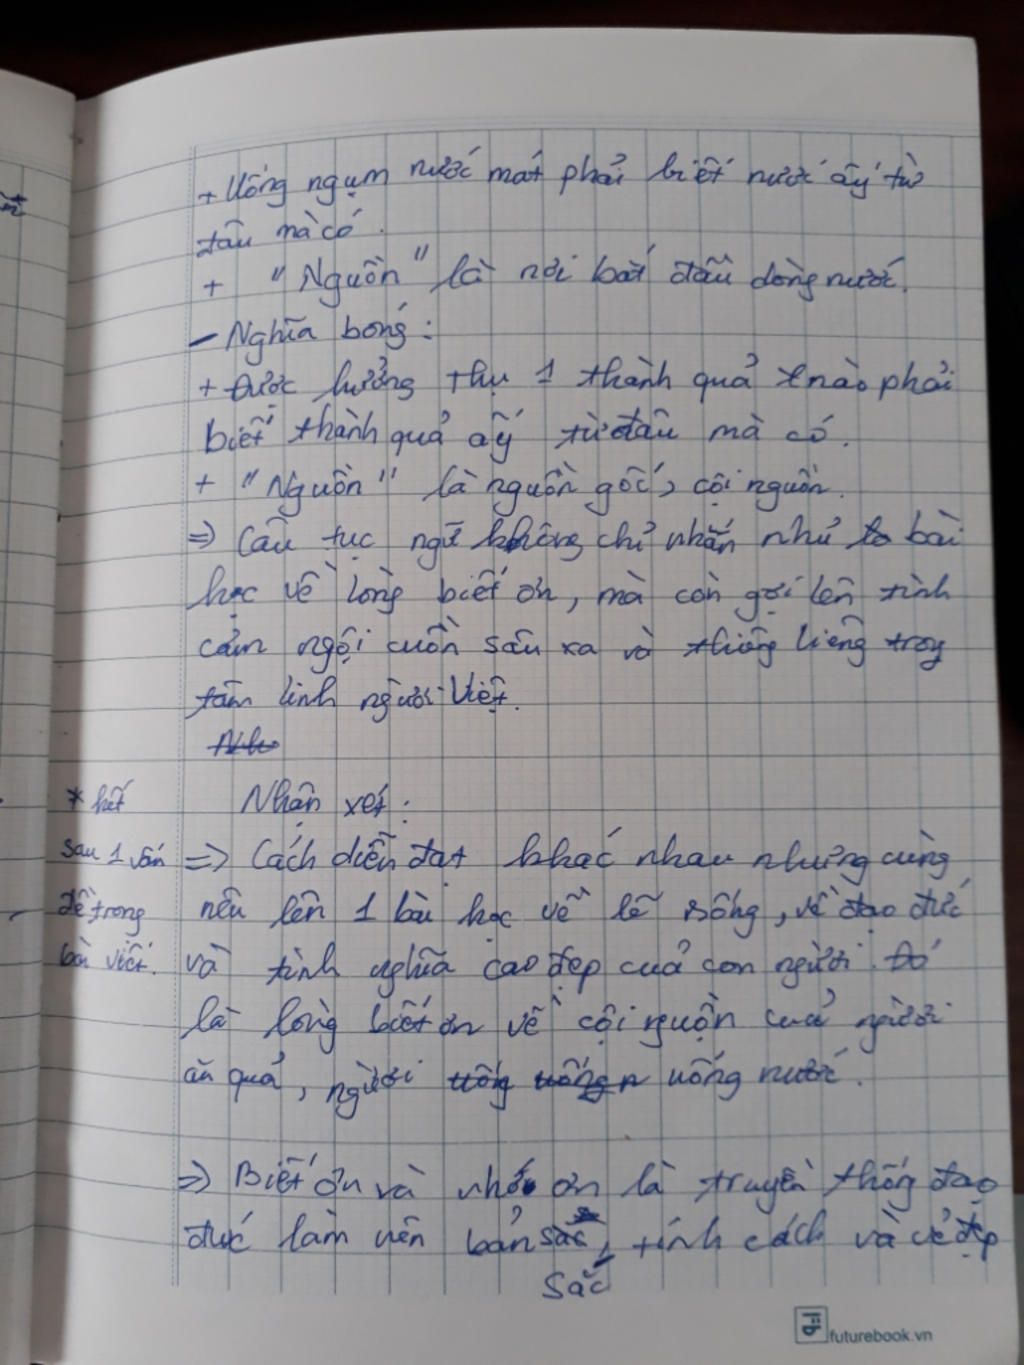 + Uống ngụm nước mát phải biết nước ấy từ
đâu mà có.
+ "Nguồn" là nơi bắt đầu dòng nước.
- Nghĩa bóng:
+ Được hưởng thụ 1 thành quả nào phải
biết thành quả ấy từ đâu mà có.
+ "Nguồn" là nguồn gốc, cội nguồn.
=> Câu tục ngữ không chỉ nhắn nhủ bài
học về lòng biết ơn, mà còn gợi lên tình
cảm ngội cuồn sâu xa và thiêng liêng trong
tâm linh người Việt.
* hết
sau 1 vấn
đề trong
bài viết.
Nhận xét:
=> Cách diễn đạt khác nhau nhưng cùng
nêu lên 1 bài học về lẽ sống, về đạo đức
và tình nghĩa cao đẹp của con người. Đó
là lòng biết ơn về cội nguồn của người
ăn quả, người uống nước.
=> Biết ơn và nhớ ơn là truyền thống đạo
đức làm nên bản sắc, tính cách và vẻ đẹp
sắc
futurebook.vn